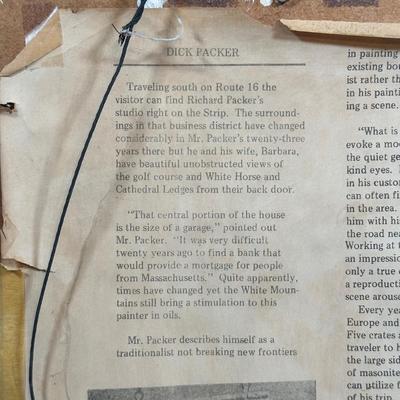 DICK PACKER
Traveling south on Route 16 the
visitor can find Richard Packer's
studio right on the Strip. The surround-
ings in that business district have changed
considerably in Mr. Packer's twenty-three
years there but he and his wife, Barbara,
have beautiful unobstructed views of
the golf course and White Horse and
Cathedral Ledges from their back door.
"That central portion of the house
is the size of a garage," pointed out
Mr. Packer. "It was very difficult
twenty years ago to find a bank that
would provide a mortgage for people
from Massachusetts." Quite apparently,
times have changed yet the White Moun-
tains still bring a stimulation to this
painter in oils.
Mr. Packer describes himself as a
traditionalist not breaking new frontiers
in painting
existing bou
ist rather th
in his painti
ing a scene.
"What is
evoke a moo
the quiet ge
kind eyes.
in his custo
can often fi
in the area.
him with his
the road nea
Working at t
an impression
only a true
a reproducti
scene arouse
Every yea
Europe and
Five crates a
traveler to h
the large sid
of masonite
can utilize f
of his trip.